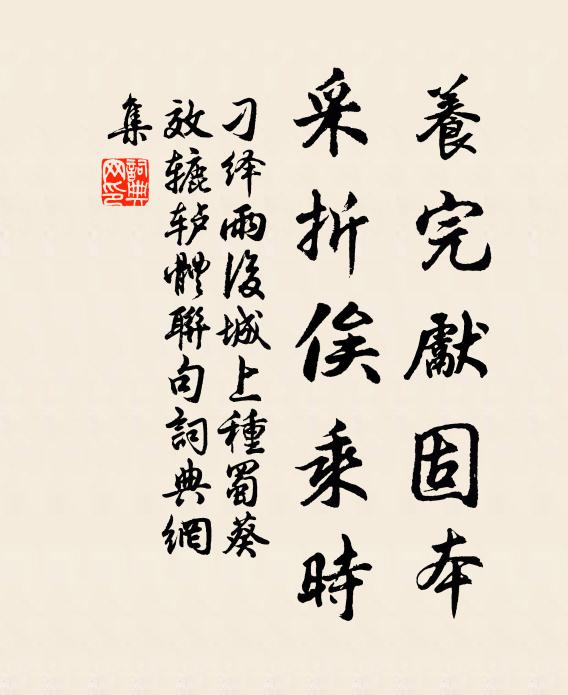 養完獻固本
采折俟乘時
刁绎雨後城上種蜀葵
效辘轳體聯句詞典網
集
詞典網印